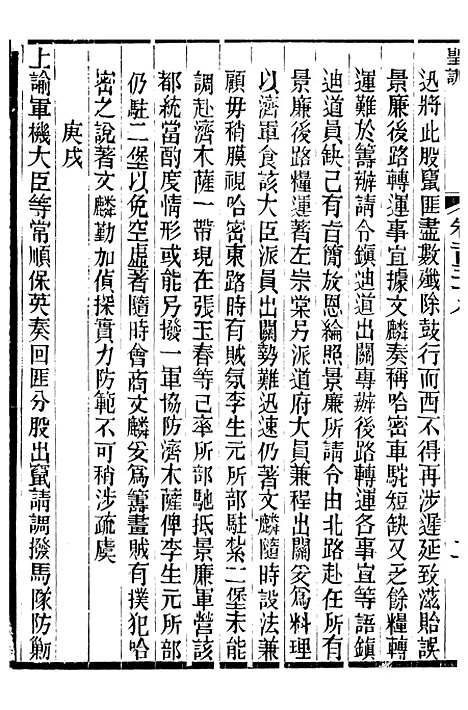 聖訓
迅將此股竄匪盡數殲除鼓行而西不得再涉遲延致滋貽誤
景廉後路轉運事宜據文麟奏稱哈密車駝短缺又乏餘糧轉
運難於籌辦請令鎮迪道出關專辦後路轉運各事宜等語鎮
迪道員缺已有旨簡放恩綸照景廉所請令由北路赴任所有
景廉後路糧運著左崇棠另派道府大員兼程出關妥為料理
以濟軍食該大臣派員出關勢難迅速仍著文麟隨時設法兼
顧毋稍膜視哈密東路時有賊氛李生元所部駐紮二堡未能
調赴濟木薩一帶現在張玉春等已率所部馳抵景廉軍營該
都統當酌度情形或能另撥一軍協防濟木薩俾李生元所部
仍駐二堡以免空虛著隨時會商文麟妥為籌畫賊有撲犯哈
密之說著文麟勤加偵探實力防範不可稍涉疏虞
庚戌
上諭軍機大臣等常順保英奏回匪分股出竄請調撥馬隊防勦